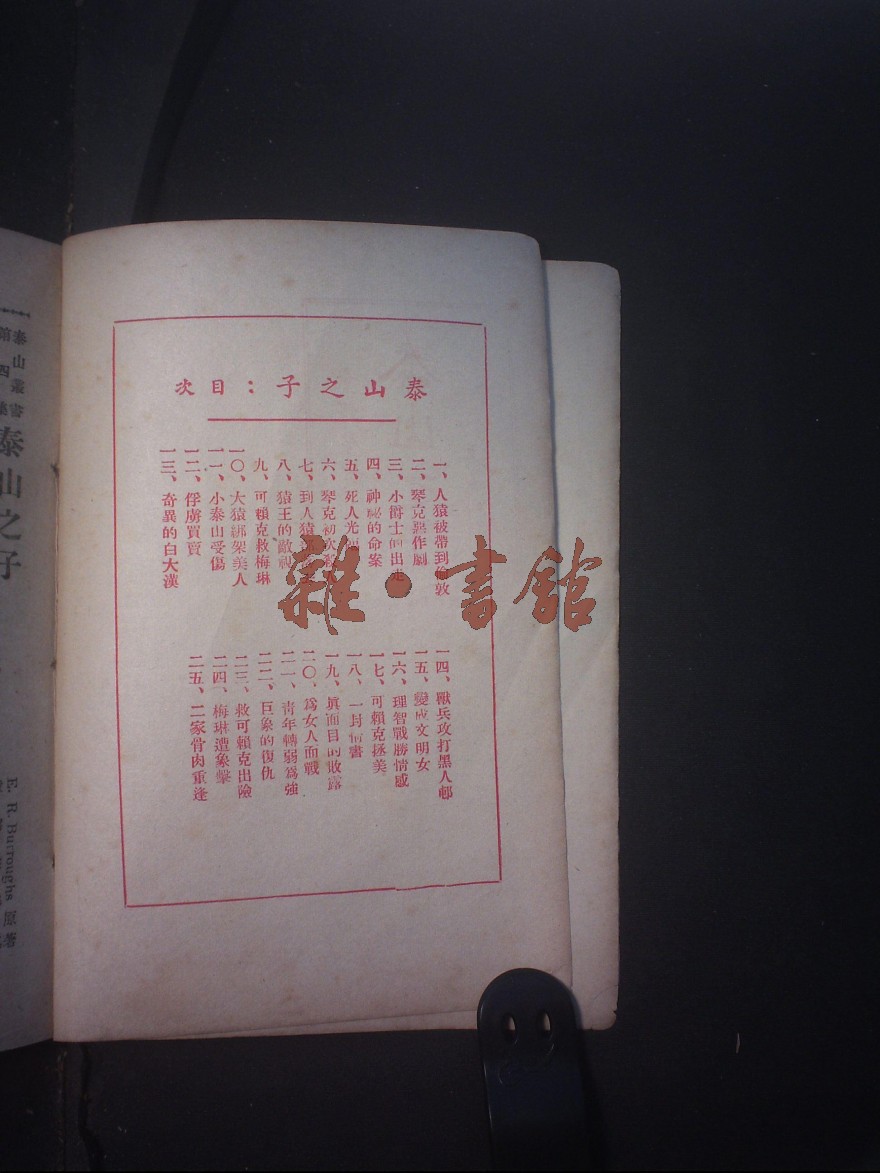 泰山之子：目次
一、人猿被帶到倫敦
二、琴克惡作劇
三、小爵士的出走
四、神祕的命案
五、死人光
六、琴克初次殺
七、到人猿
八、猿王的敵視
九、可賴克救梅琳
一〇、大猿綁架美人
一一、小泰山受傷
一二、俘虜買賣
一三、奇異的白大漢
一四、獸兵攻打黑人邨
一五、變成文明女
一六、理智戰勝情感
一七、可賴克拯美
一八、一封情書
一九、眞面目的敗露
二〇、爲女人而戰
二一、青年轉弱爲強
二二、巨象的復仇
二三、救可賴克出險
二四、梅琳遭象擊
二五、二家骨肉重逢
雜·書館
泰山叢書
第四集
泰山之子
E. R. Burroughs 原著